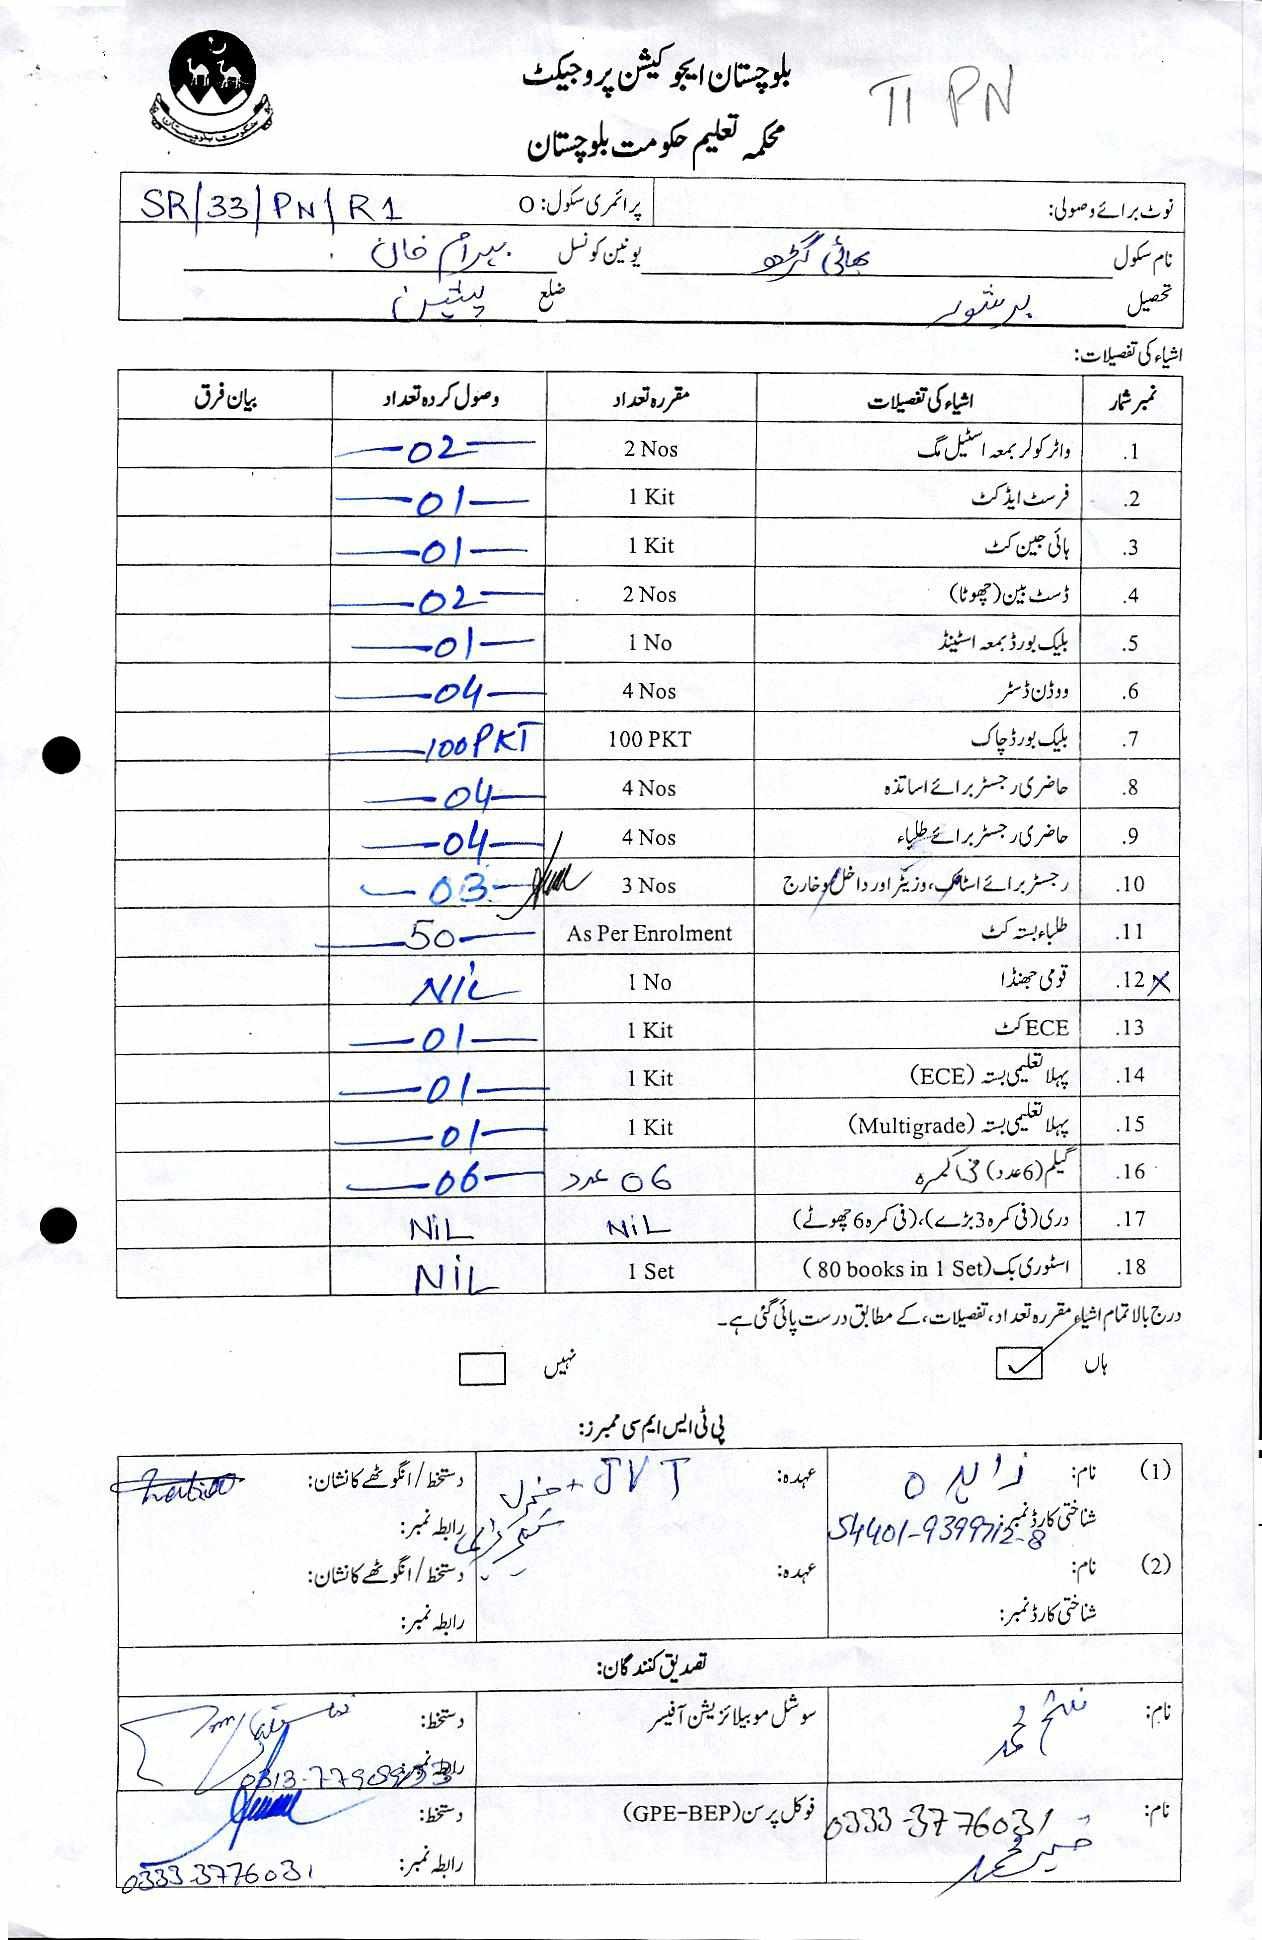 بلوچستان ایجوکیشن پروجیکٹ
TI PN
محکمہ تعلیم حکومت بلوچستان
حکومت بلوچستان
نوٹ برائے وصولی: پرائمری سکول: O SR/33/PN/R1
نام سکول بھائی گڑھ یونین کونسل بہرام خان
تحصیل برشور ضلع پشین
اشیاء کی تفصیلات:
نمبر شمار اشیاء کی تفصیلات مقررہ تعداد وصول کردہ تعداد بیان فرق
1. واٹر کولر بمعہ اسٹیل مگ 2 Nos 02
2. فرسٹ ایڈ کٹ 1 Kit 01
3. ہائی جین کٹ 1 Kit 01
4. ڈسٹ بین (چھوٹا) 2 Nos 02
5. بلیک بورڈ بمعہ اسٹینڈ 1 No 01
6. ووڈن ڈسٹر 4 Nos 04
7. بلیک بورڈ چاک 100 PKT 100 PKT
8. حاضری رجسٹر برائے اساتذہ 4 Nos 04
9. حاضری رجسٹر برائے طلباء 4 Nos 04
10. رجسٹر برائے اسٹاک، وزیٹر اور داخل و خارج 3 Nos 03
11. طلباء بستہ کٹ As Per Enrolment 50
12. X قومی جھنڈا 1 No NIL
13. ECE کٹ 1 Kit 01
14. پہلا تعلیمی بستہ (ECE) 1 Kit 01
15. پہلا تعلیمی بستہ (Multigrade) 1 Kit 01
16. گیلم (6 عدد) فی کمرہ 06 عدد 06
17. دری (فی کمرہ 3 بڑے)، (فی کمرہ 6 چھوٹے) NiL NiL
18. اسٹوری بک (80 books in 1 Set) 1 Set NiL
درج بالا تمام اشیاء مقررہ تعداد، تفصیلات، کے مطابق درست پائی گئی ہے۔
ہاں ✓ نہیں
پی ٹی ایس ایم سی ممبرز:
(1) نام: زاہدہ عہدہ: JVT + دستخط / انگوٹھے کا نشان:
شناختی کارڈ نمبر: 54401-9399712-8 رابطہ نمبر:
(2) نام: عہدہ: دستخط / انگوٹھے کا نشان:
شناختی کارڈ نمبر: رابطہ نمبر:
تصدیق کنندگان:
نام: سوشل موبیلائزیشن آفیسر دستخط:
رابطہ نمبر:
نام: 0333-3776031 فوکل پرسن (GPE-BEP) دستخط:
رابطہ نمبر: 0333-3776031